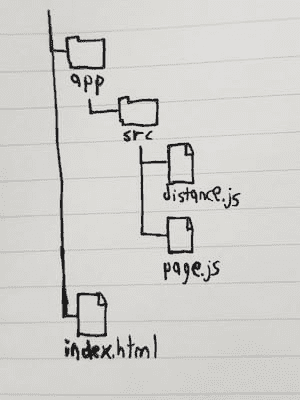 app
src
distance.js
page.js
index.html